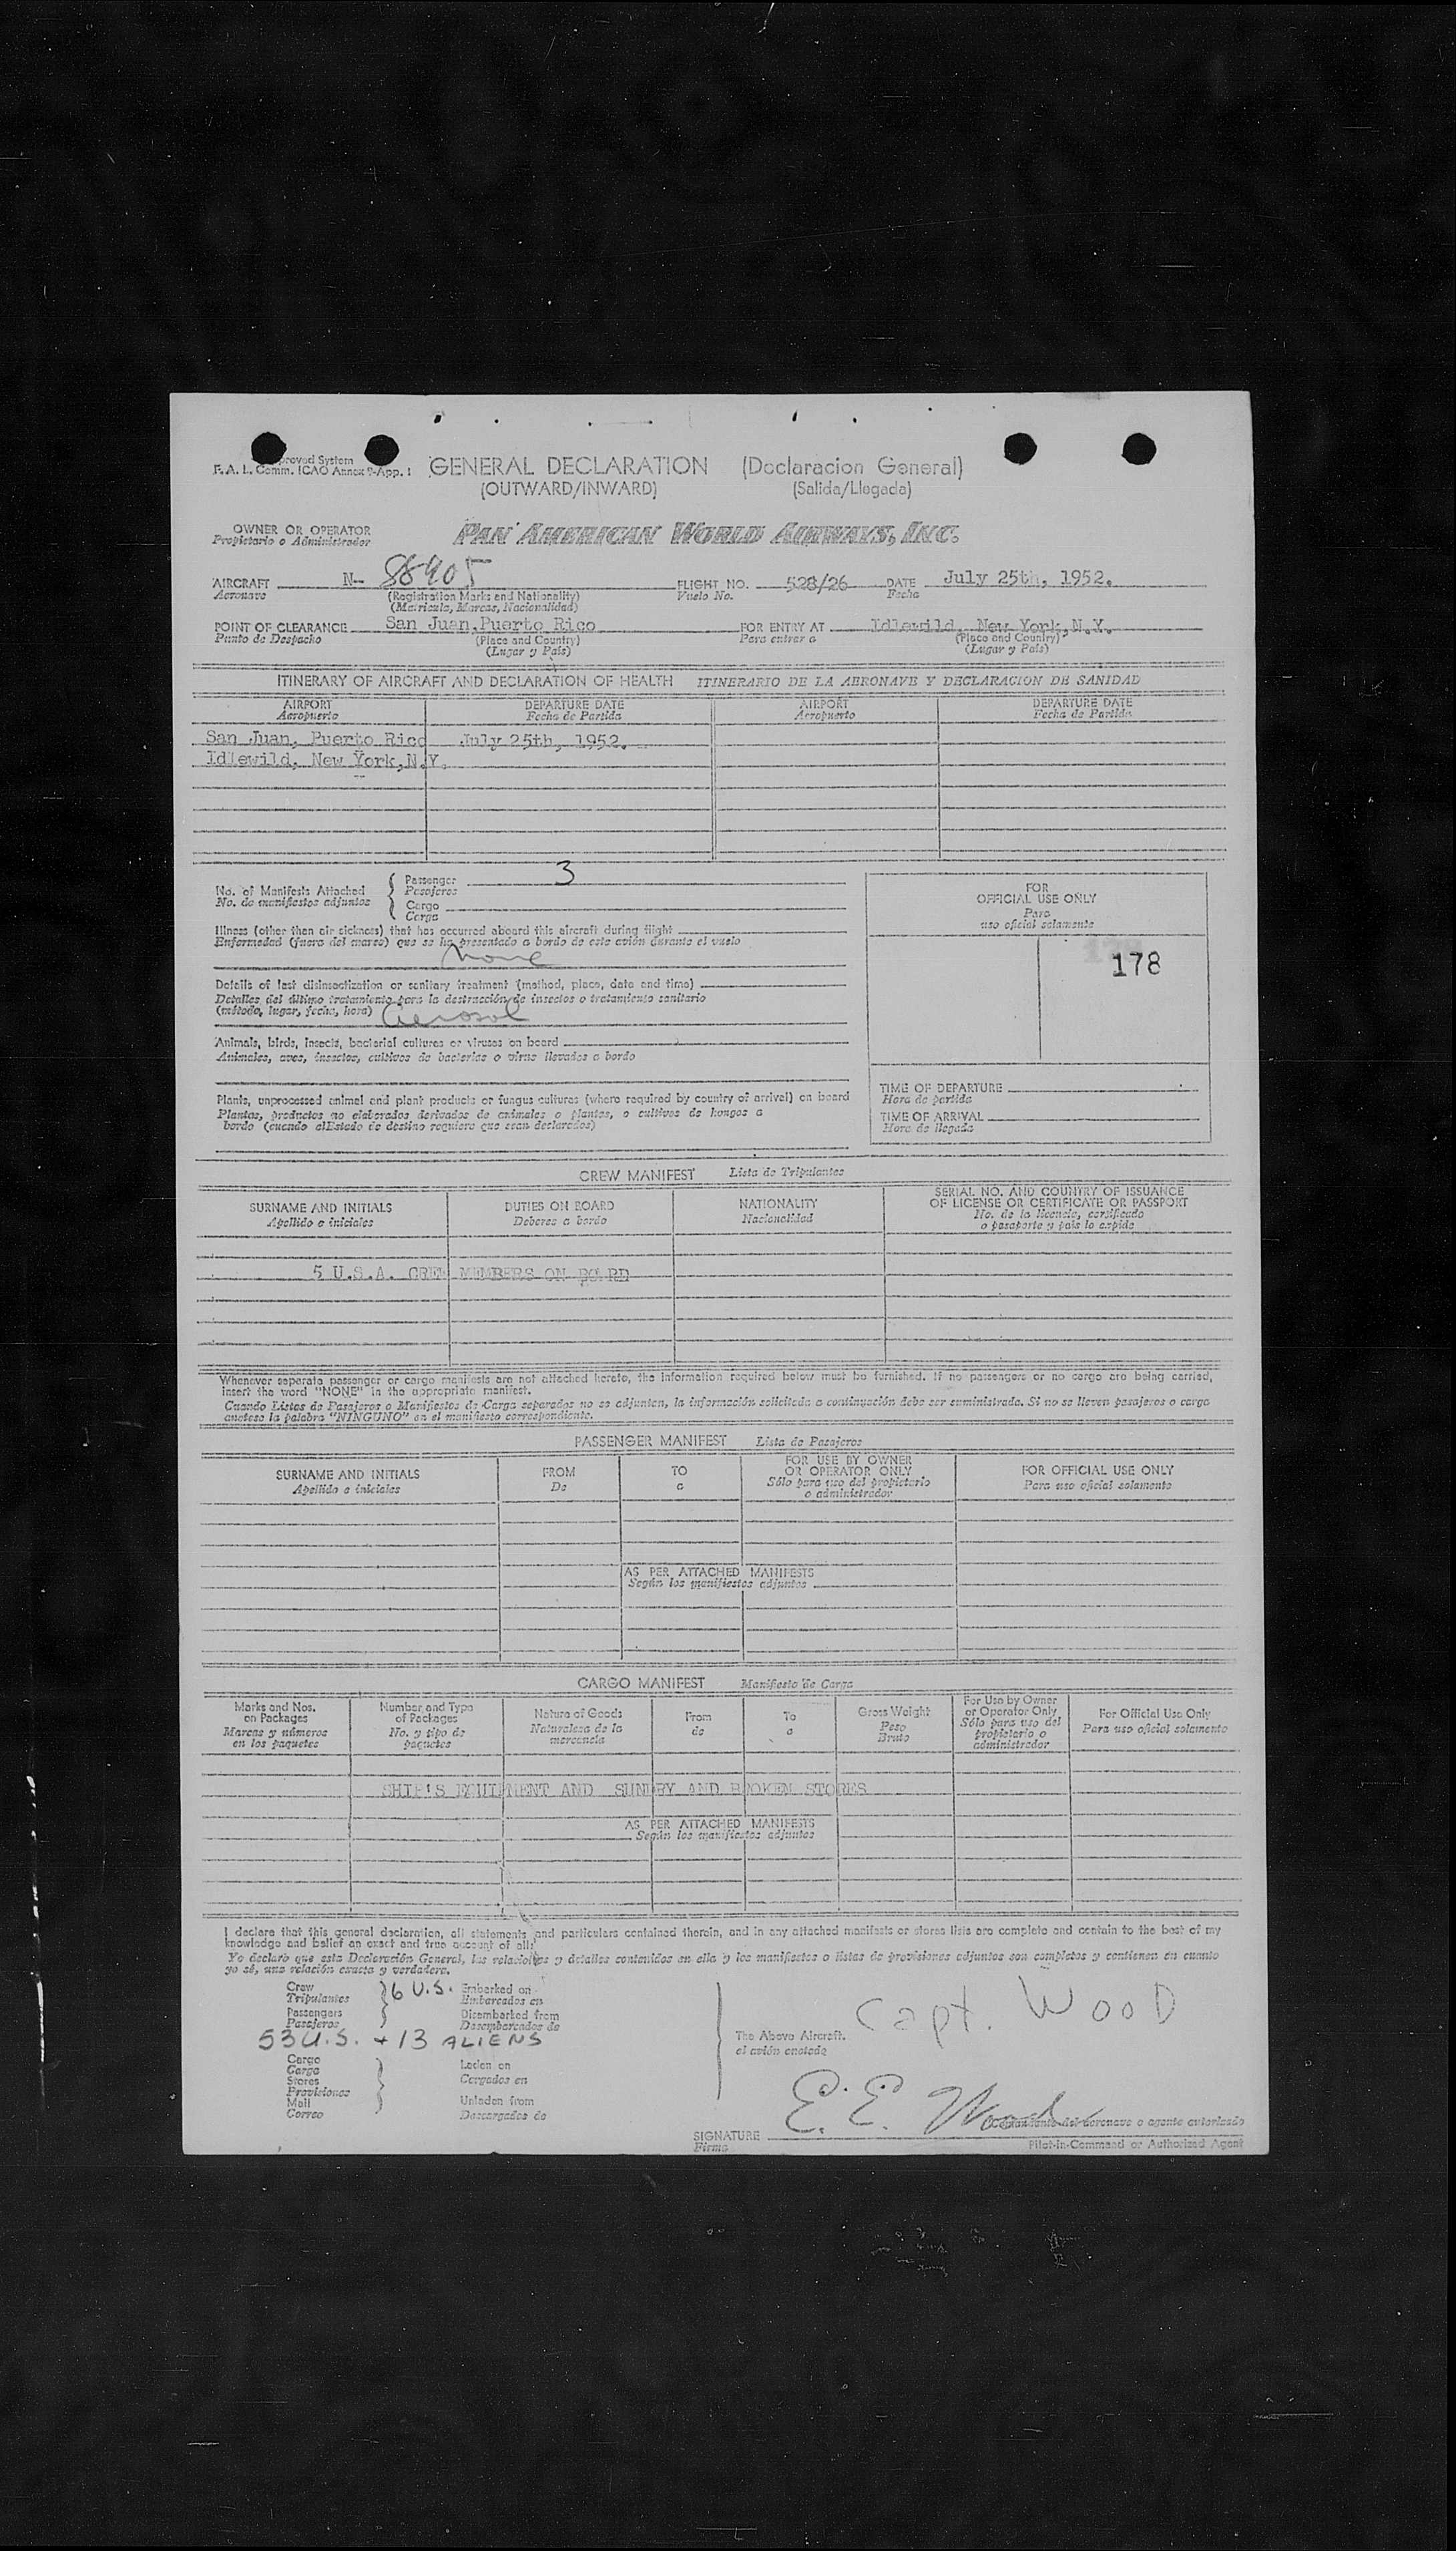 roved System
F. A. L. Comm. ICAO Annex 9-App. 1
GENERAL DECLARATION (Declaracion General)
(OUTWARD/INWARD) (Salida/Llegada)
OWNER OR OPERATOR
Propietario o Administrador
PAN AMERICAN WORLD AIRWAYS, INC.
AIRCRAFT N- 88905 FLIGHT NO. 528/26 DATE July 25th, 1952.
Aeronave (Registration Marks and Nationality) Vuelo No. Fecha
(Matricula, Marcas, Nacionalidad)
POINT OF CLEARANCE San Juan, Puerto Rico FOR ENTRY AT Idlewild, New York, N.Y.
Punto de Despacho (Place and Country) Para entrar a (Place and Country)
(Lugar y Pais) (Lugar y Pais)
ITINERARY OF AIRCRAFT AND DECLARATION OF HEALTH ITINERARIO DE LA AERONAVE Y DECLARACION DE SANIDAD
AIRPORT DEPARTURE DATE AIRPORT DEPARTURE DATE
Aeropuerto Fecha de Partida Aeropuerto Fecha de Partida
San Juan, Puerto Rico July 25th, 1952.
Idlewild, New York, N.Y.
No. of Manifests Attached
No. de manifiestos adjuntos
Passenger 3
Pasajeros
Cargo
Carga
Illness (other than air sickness) that has occurred aboard this aircraft during flight
Enfermedad (fuera del mareo) que se ha presentado a bordo de este avión durante el vuelo
None
Details of last disinsectization or sanitary treatment (method, place, date and time)
Detalles del último tratamiento para la destrucción de insectos o tratamiento sanitario
(método, lugar, fecha, hora) Aerosol
Animals, birds, insects, bacterial cultures or viruses on board
Animales, aves, insectos, cultivos de bacterias o virus llevados a bordo
Plants, unprocessed animal and plant products or fungus cultures (where required by country of arrival) on board
Plantas, productos no elaborados derivados de animales o plantas, o cultivos de hongos a
bordo (cuando el Estado de destino requiera que sean declarados)
FOR
OFFICIAL USE ONLY
Para
uso oficial solamente
178
TIME OF DEPARTURE
Hora de partida
TIME OF ARRIVAL
Hora de llegada
CREW MANIFEST Lista de Tripulantes
SURNAME AND INITIALS DUTIES ON BOARD NATIONALITY SERIAL NO. AND COUNTRY OF ISSUANCE
OF LICENSE OR CERTIFICATE OR PASSPORT
Apellido e iniciales Deberes a bordo Nacionalidad No. de la licencia, certificado
o pasaporte y pais lo expide
5 U.S.A. CREW MEMBERS ON BOARD
Whenever separate passenger or cargo manifests are not attached hereto, the information required below must be furnished. If no passengers or no cargo are being carried,
insert the word "NONE" in the appropriate manifest.
Cuando Listas de Pasajeros o Manifiestos de Carga separados no se adjunten, la información solicitada a continuación debe ser suministrada. Si no se lleven pasajeros o carga
anotese la palabra "NINGUNO" en el manifiesto correspondiente.
PASSENGER MANIFEST Lista de Pasajeros
SURNAME AND INITIALS FROM TO FOR USE BY OWNER
OR OPERATOR ONLY FOR OFFICIAL USE ONLY
Apellido e iniciales De a Sólo para uso del propietario
o administrador Para uso oficial solamente
AS PER ATTACHED MANIFESTS
Según los manifiestos adjuntos
CARGO MANIFEST Manifiesto de Carga
Marks and Nos.
on Packages
Marcas y números
en los paquetes
Number and Type
of Packages
No. y tipo de
paquetes
Nature of Goods
Naturaleza de la
mercancia
From
de
To
a
Gross Weight
Peso
Bruto
For Use by Owner
or Operator Only
Sólo para uso del
propietario o
administrador
For Official Use Only
Para uso oficial solamente
SHIP'S EQUIPMENT AND SUNDRY AND BROKEN STORES
AS PER ATTACHED MANIFESTS
Según los manifiestos adjuntos
I declare that this general declaration, all statements and particulars contained therein, and in any attached manifests or stores lists are complete and contain to the best of my
knowledge and belief an exact and true account of all:
Yo declaro que esta Declaración General, las relaciones y detalles contenidos en ella y los manifiestos o listas de provisiones adjuntos son completos y contienen en cuanto
yo sé, una relación exacta y verdadera.
Crew
Tripulantes
6 U.S.
Embarked on
Embarcados en
Passengers
Pasajeros
Disembarked from
Desembarcados de
53 U.S. + 13 ALIENS
Cargo
Carga
Stores
Provisiones
Mail
Correo
Laden on
Cargados en
Unladen from
Descargados de
The Above Aircraft.
el avión anotado
Capt. WOOD
E. E. Wood
Comandante del aeronave o agente autorizado
SIGNATURE
Firma
Pilot-in-Command or Authorized Agent